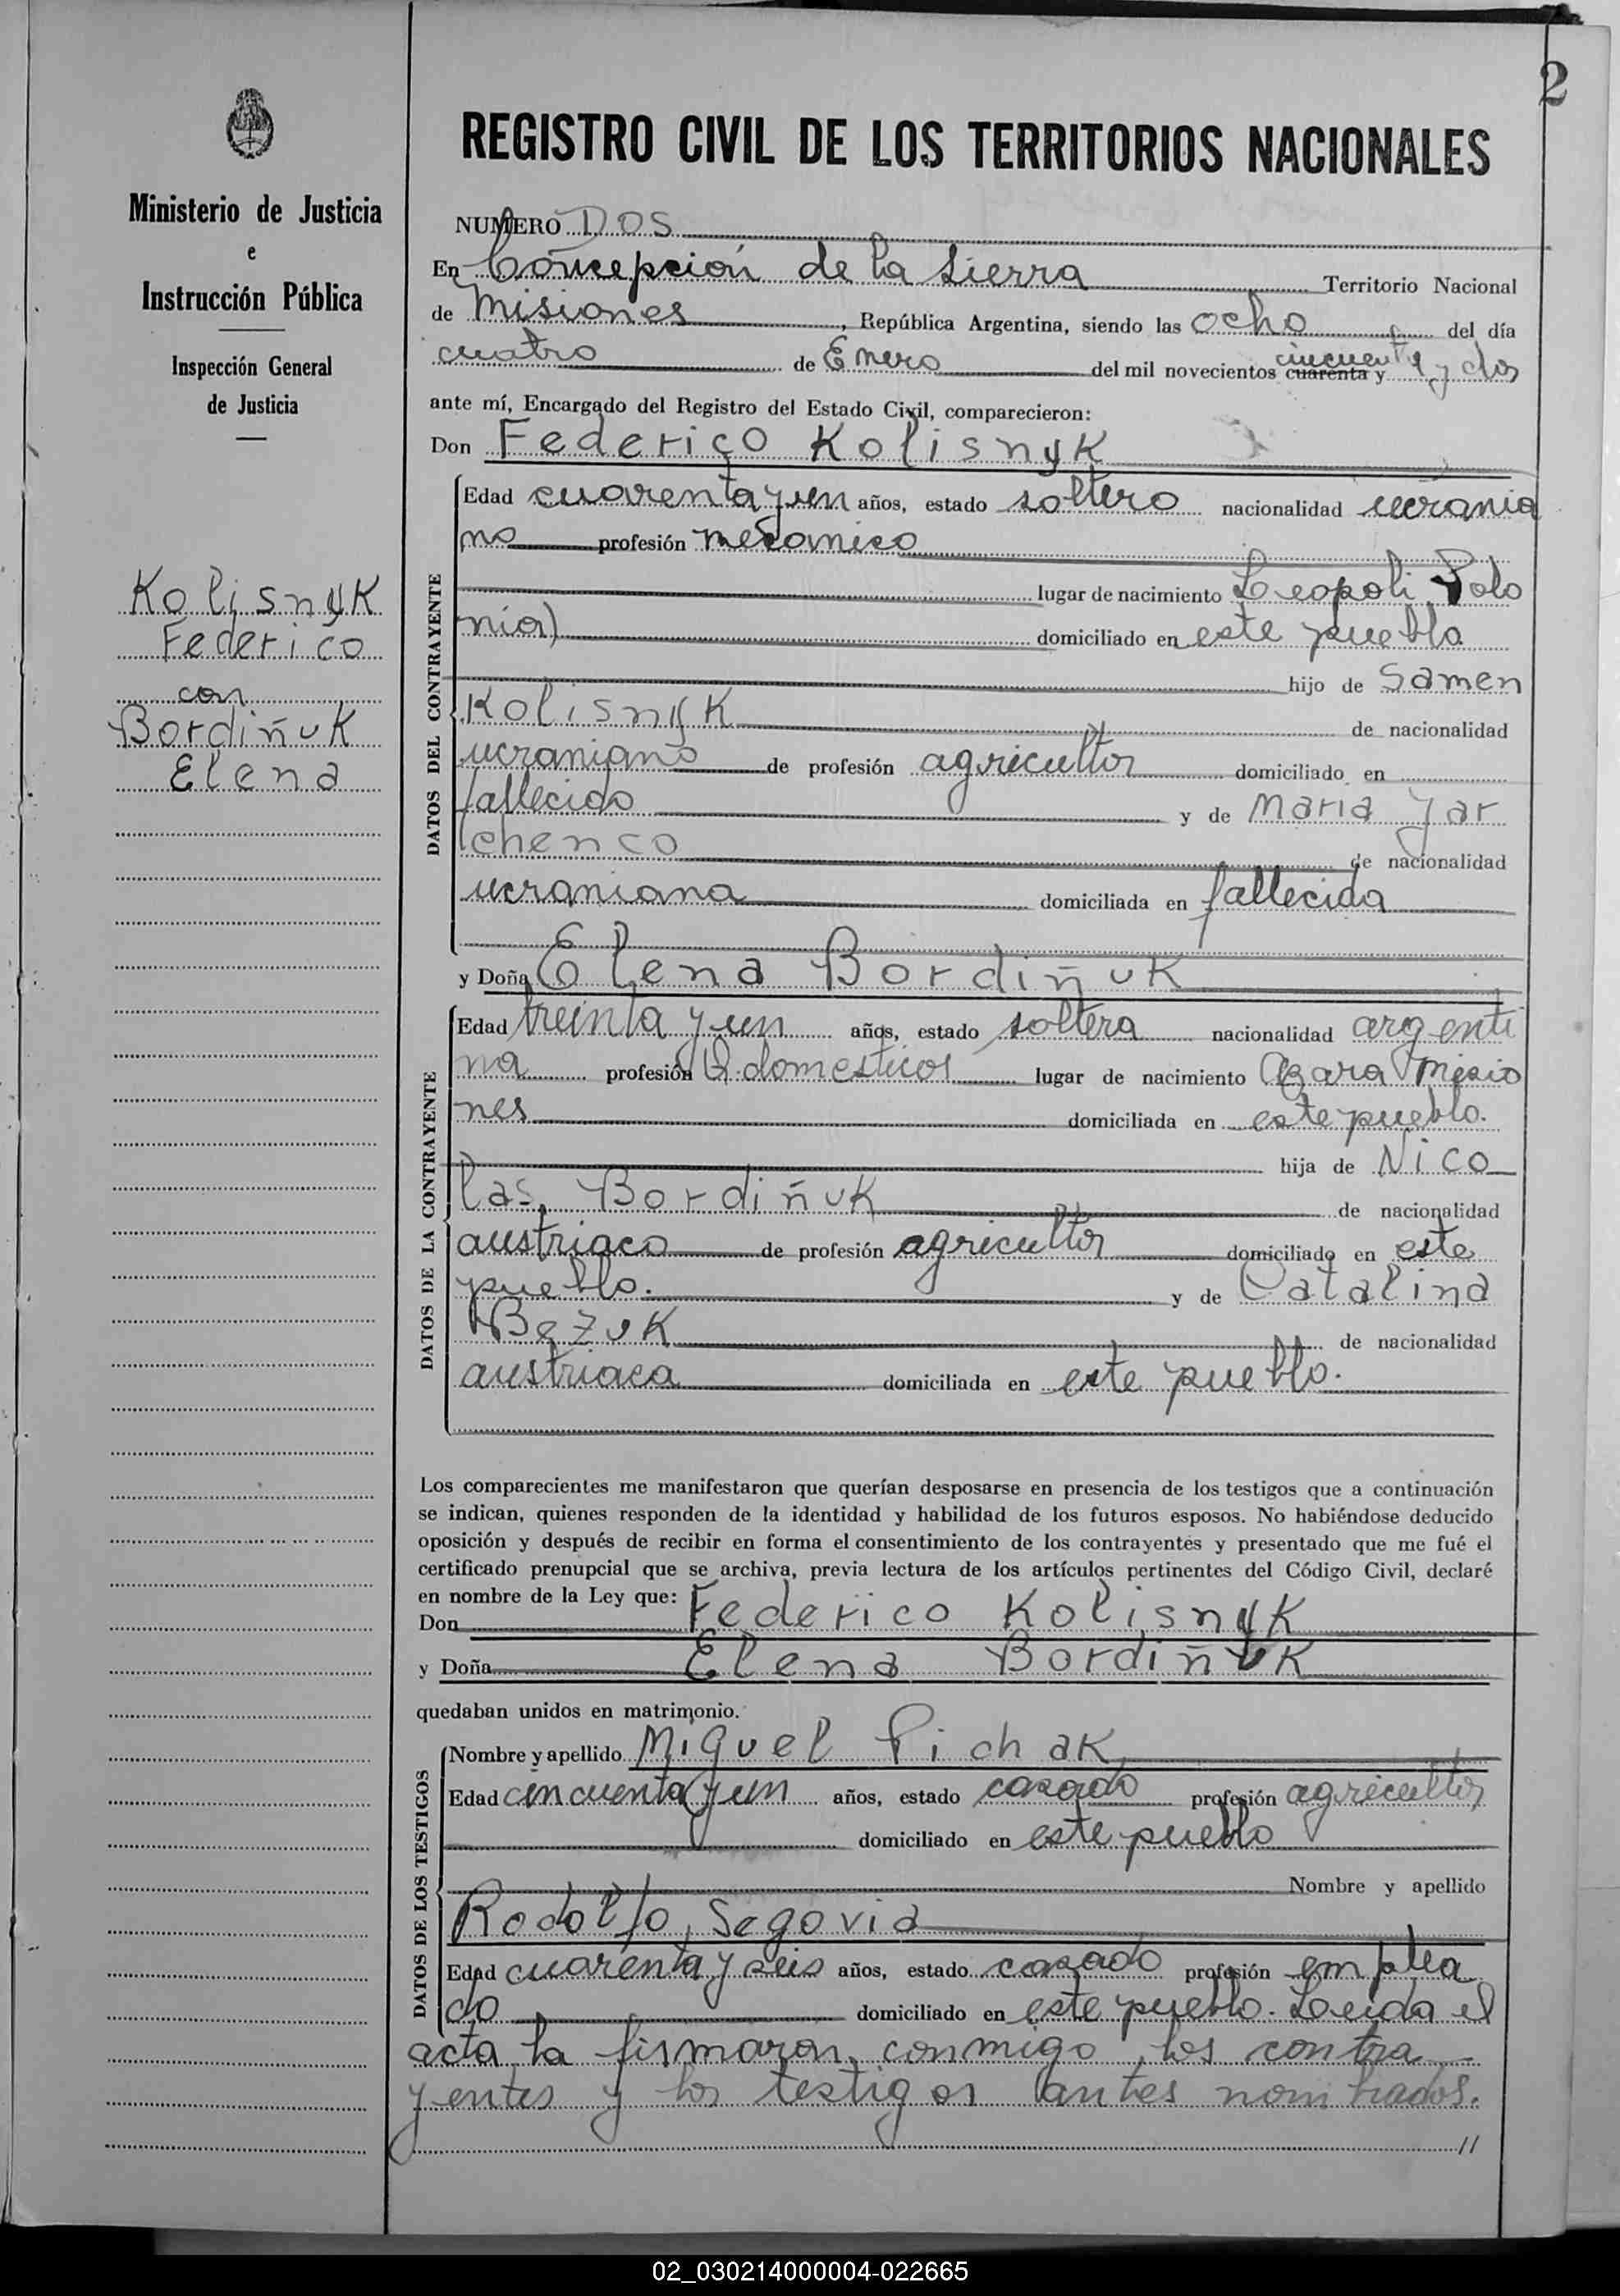 2
Ministerio de Justicia
e
Instrucción Pública
Inspección General
de Justicia
Kolisnyk
Federico
con
Bordiñuk
Elena
REGISTRO CIVIL DE LOS TERRITORIOS NACIONALES
NUMERO DOS
En Concepción de la Sierra Territorio Nacional
de Misiones, República Argentina, siendo las ocho del día
cuatro de Enero del mil novecientos cuarenta y cincuenta y dos
ante mí, Encargado del Registro del Estado Civil, comparecieron:
Don Federico Kolisnyk
DATOS DEL CONTRAYENTE
Edad cuarenta y un años, estado soltero nacionalidad ucrania
no profesión mecanico
lugar de nacimiento Leopoli, Polo
nia) domiciliado en este pueblo
hijo de Samen
Kolisnyk de nacionalidad
ucraniano de profesión agricultor domiciliado en
fallecido y de Maria Jar
chenco de nacionalidad
ucraniana domiciliada en fallecida
y Doña Elena Bordiñuk
DATOS DE LA CONTRAYENTE
Edad treinta y un años, estado soltera nacionalidad argenti
na profesión Q. domesticos lugar de nacimiento Azara Misio
nes domiciliada en este pueblo.
hija de Nico
las Bordiñuk de nacionalidad
austriaco de profesión agricultor domiciliado en este
pueblo. y de Catalina
Bezuk de nacionalidad
austriaca domiciliada en este pueblo.
Los comparecientes me manifestaron que querían desposarse en presencia de los testigos que a continuación
se indican, quienes responden de la identidad y habilidad de los futuros esposos. No habiéndose deducido
oposición y después de recibir en forma el consentimiento de los contrayentes y presentado que me fué el
certificado prenupcial que se archiva, previa lectura de los artículos pertinentes del Código Civil, declaré
en nombre de la Ley que:
Don Federico Kolisnyk
y Doña Elena Bordiñuk
quedaban unidos en matrimonio.
DATOS DE LOS TESTIGOS
Nombre y apellido Miguel Pichak
Edad cincuenta y un años, estado casado profesión agricultor
domiciliado en este pueblo
Nombre y apellido
Rodolfo Segovia
Edad cuarenta y seis años, estado casado profesión emplea
do domiciliado en este pueblo. Leida el
acta la firmaron conmigo los contra
yentes y los testigos antes nombrados.
//
02_030214000004-022665